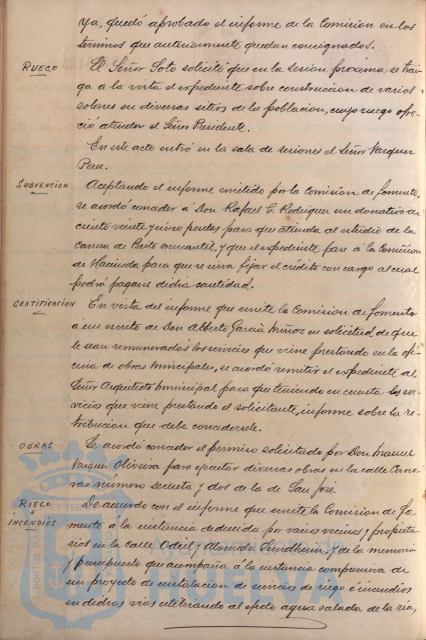 ya, quedó aprobado el informe de la Comision en los
terminos que anteriormente quedan consignados.
RUEGO
El Señor Soto solicitó que en la sesion próxima se trai-
ga á la vista el expediente sobre construccion de varios
solares en diversos sitios de la poblacion, cuyo ruego ofre-
ció atender el Señor Presidente.
En este acto entró en la sala de sesiones el Señor Vazquez
Perez.
SUBVENCIÓN
Aceptando el informe emitido por la Comision de fomento,
se acordó conceder á Don Rafael C. Rodriguez un donativo de
ciento veinte y cinco pesetas para que atienda al estudio de la
carrera de Perito mercantil, y que el expediente pase á la Comision
de Hacienda para que se sirva fijar el crédito con cargo al cual
podrá pagarse dicha cantidad.
GRATIFICACION
En vista del informe que emite la Comision de fomento
á un escrito de Don Alberto Garcia Muñoz en solicitud de que
le sean remunerados los servicios que viene prestando en la ofi-
cina de obras municipales, se acordó remitir el expediente al
Señor Arquitecto municipal para que teniendo en cuenta los ser-
vicios que viene prestando el solicitante, informe sobre la re-
tribucion que debe concedersele.
OBRAS
Se acordó conceder el permiso solicitado por Don Manuel
Vazquez Oliveira para ejecutar diversas obras en la calle Cane-
ras numero sesenta y dos de la de San José.
RIEGO
é
INCENDIOS
De acuerdo con el informe que emite la Comision de fo-
mento á la instancia deducida por varios vecinos y propieta-
rios en la calle Odiel y Alameda Sundheim, y de la memoria
y presupuesto que acompaña á la instancia comprensiva de
un proyecto de instalacion de servicios de riego é incendios
en dichas vias utilizando al efecto agua salada de la ria,
HUELVA